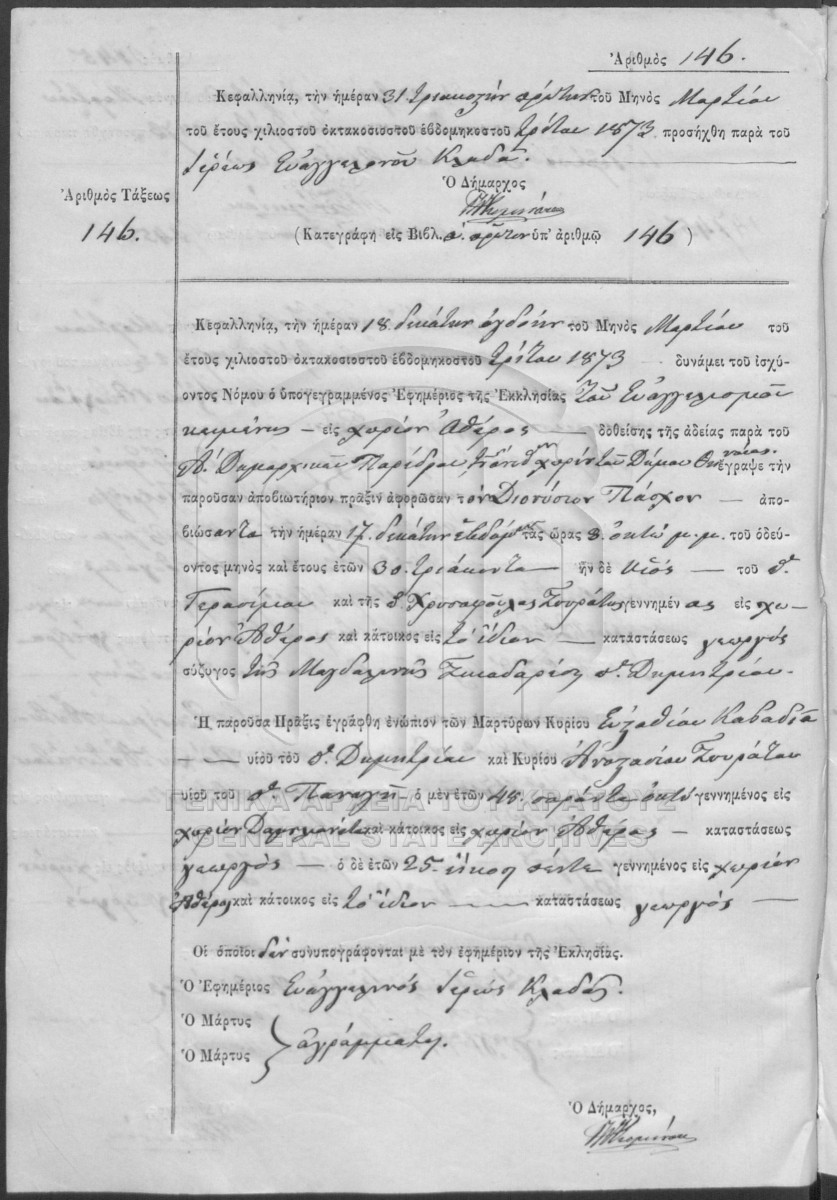 Ἀριθμὸς 146.
Κεφαλληνίᾳ, τὴν ἡμέραν 31 τριακοστὴν πρώτην τοῦ Μηνὸς Μαρτίου
τοῦ ἔτους χιλιοστοῦ ὀκτακοσιοστοῦ ἑβδομηκοστοῦ τρίτου 1873 προσήχθη παρὰ τοῦ
Ἱερέως Εὐαγγελινοῦ Κλαδᾶ.
Ὁ Δήμαρχος
Ἀριθμὸς Τάξεως
146.
(Κατεγράφη εἰς Βιβλ. α. πρῶτον ὑπ' ἀριθμῷ 146)
Κεφαλληνίᾳ, τὴν ἡμέραν 18 δεκάτην ὀγδόην τοῦ Μηνὸς Μαρτίου τοῦ
ἔτους χιλιοστοῦ ὀκτακοσιοστοῦ ἑβδομηκοστοῦ τρίτου 1873 — δυνάμει τοῦ ἰσχύ-
οντος Νόμου ὁ ὑπογεγραμμένος Ἐφημέριος τῆς Ἐκκλησίας τοῦ Εὐαγγελισμοῦ
κειμένης — εἰς χωρίον Ἀθέρας — δοθείσης τῆς ἀδείας παρὰ τοῦ
Α. Δημαρχικοῦ Παρέδρου τοῦ χωρίου τοῦ Δήμου ἔγραψε τὴν
παροῦσαν ἀποβιωτήριον πρᾶξιν ἀφορῶσαν τὸν Διονύσιον Πάσχον — ἀπο-
βιώσαντα τὴν ἡμέραν 17 δεκάτην ἑβδόμην τὰς ὥρας 8 ὀκτώ μ.μ. τοῦ ὁδεύ-
οντος μηνὸς καὶ ἔτους ἐτῶν 30 τριάκοντα — ἦν δὲ υἱὸς — τοῦ π.
Γερασίμου καὶ τῆς π. Χρυσαφούλας Σουράτος γεννημένος εἰς χω-
ρίον Ἀθέρας καὶ κάτοικος εἰς τὸ ἴδιον — καταστάσεως γεωργὸς
σύζυγος τῆς Μαγδαληνῆς π. Δημητρίου.
Ἡ παροῦσα Πρᾶξις ἐγράφθη ἐνώπιον τῶν Μαρτύρων Κυρίου Εὐσταθίου Καβαδία
— — υἱοῦ τοῦ π. Δημητρίου καὶ Κυρίου Ἀναστασίου Σουράτου
υἱοῦ τοῦ π. Παναγῆ ὁ μὲν ἐτῶν 48 σαράντα ὀκτώ γεννημένος εἰς
χωρίον Δαμουλιανάτα καὶ κάτοικος εἰς χωρίον Ἀθέρας — καταστάσεως
γεωργὸς — ὁ δὲ ἐτῶν 25 εἴκοσι πέντε γεννημένος εἰς χωρίον
Ἀθέρας καὶ κάτοικος εἰς τὸ ἴδιον — — καταστάσεως γεωργὸς —
Οἱ ὁποῖοι δὲν συνυπογράφονται μὲ τὸν ἐφημέριον τῆς Ἐκλησίας.
Ὁ Ἐφημέριος Εὐαγγελινὸς Ἱερεὺς Κλαδᾶς.
Ὁ Μάρτυς
Ὁ Μάρτυς } ἀγράμματοι.
Ὁ Δήμαρχος,
ΓΕΝΙΚΑ ΑΡΧΕΙΑ ΤΟΥ ΚΡΑΤΟΥΣ
GENERAL STATE ARCHIVES